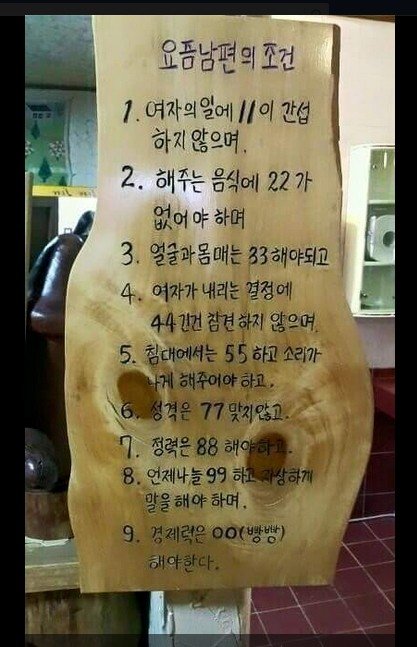 요즘남편의 조건
1. 여자의일에 11이 간섭
하지 않으며.
2. 해주는 음식에 22가
없어야 하며
3. 얼굴과몸매는 33해야되고
4. 여자가 내리는 결정에
44건건 참견하지 않으며.
5. 침대에서는 55하고 소리가
나게 해주어야 하고.
6. 성격은 77맞지않고.
7. 정력은 88해야하고.
8. 언제나늘99하고 자상하게
말을해야 하며.
9. 경제력은 00(빵빵)
해야한다.